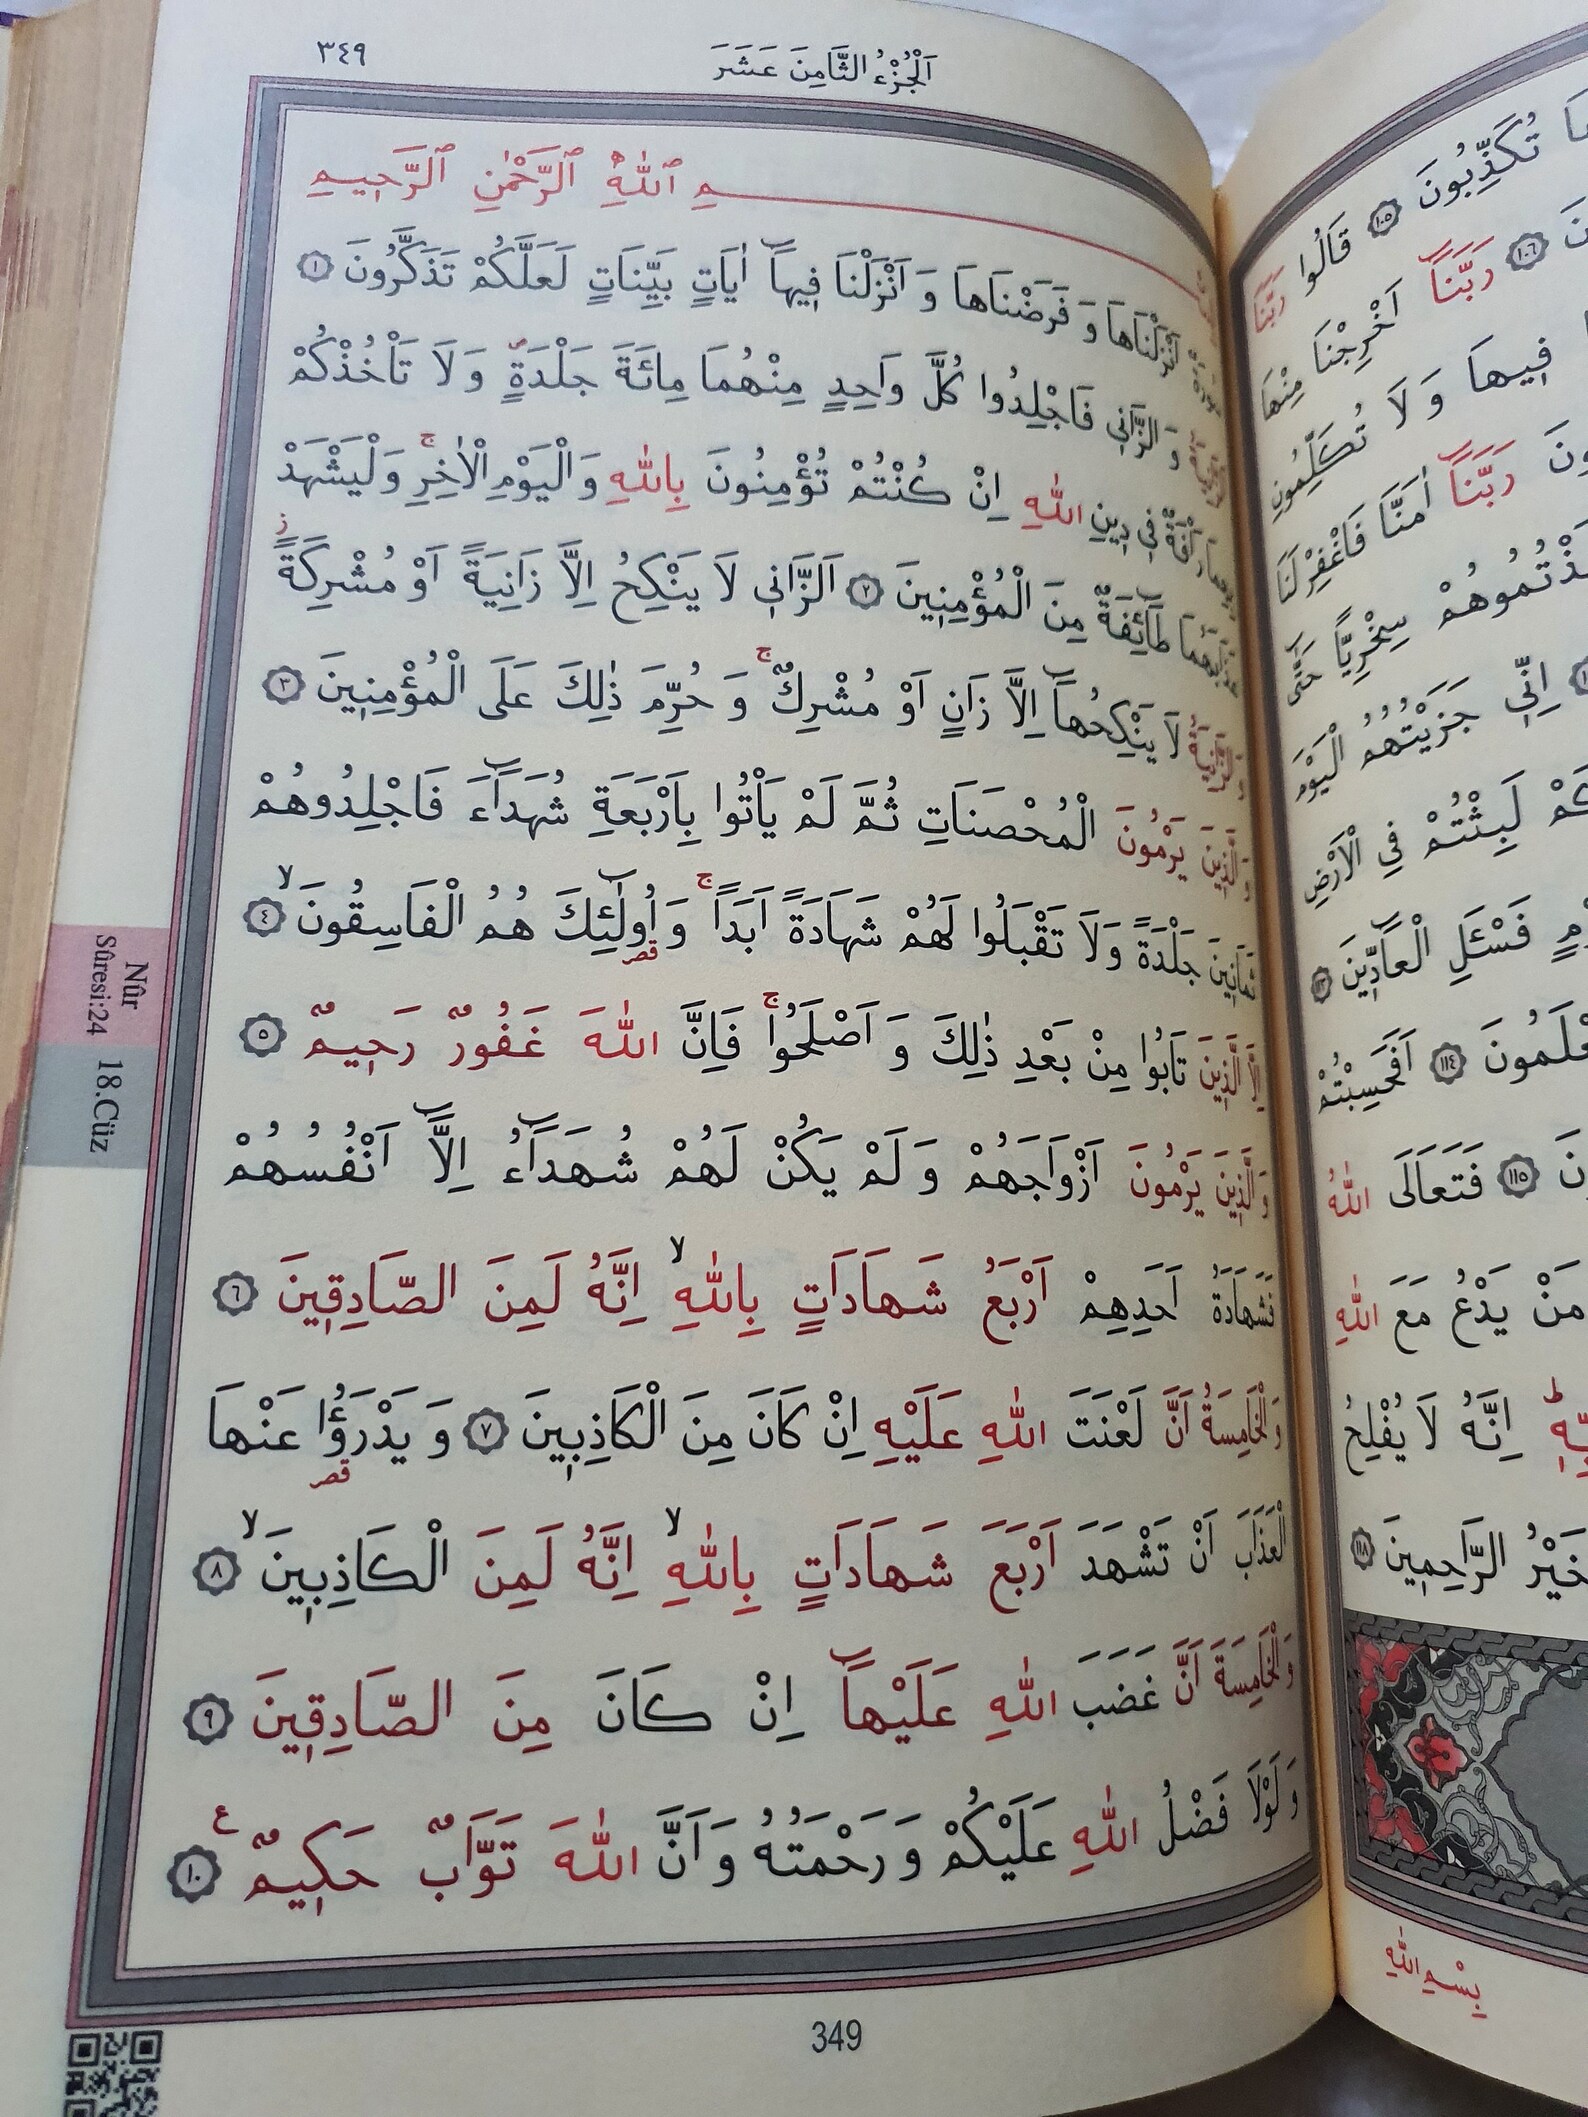 ٣٤٩
اَلْجُزْءُ الثَّامِنَ عَشَرَ
ـمِ ٱللّٰهِ ٱلرَّحْمٰنِ ٱلرَّحٖيمِ
اَنْزَلْنَاهَا وَ فَرَضْنَاهَا وَ اَنْزَلْنَا فٖيهَآ اٰيَاتٍ بَيِّنَاتٍ لَعَلَّكُمْ تَذَكَّرُونَ ١
وَ الزَّانٖى فَاجْلِدُوا كُلَّ وَاحِدٍ مِنْهُمَا مِائَةَ جَلْدَةٍۖ وَ لَا تَأْخُذْكُمْ
رَأْفَةٌ فٖى دٖينِ اللّٰهِ اِنْ كُنْتُمْ تُؤْمِنُونَ بِاللّٰهِ وَ الْيَوْمِ الْاٰخِرِۚ وَ لْيَشْهَدْ
طَٓائِفَةٌ مِنَ الْمُؤْمِنٖينَ ٢ اَلزَّانٖى لَا يَنْكِحُ اِلَّا زَانِيَةً اَوْ مُشْرِكَةًز
لَا يَنْكِحُهَٓا اِلَّا زَانٍ اَوْ مُشْرِكٌۚ وَ حُرِّمَ ذٰلِكَ عَلَى الْمُؤْمِنٖينَ ٣
وَ الَّذٖينَ يَرْمُونَ الْمُحْصَنَاتِ ثُمَّ لَمْ يَأْتُوا بِاَرْبَعَةِ شُهَدَٓاءَ فَاجْلِدُوهُمْ
ثَمَانٖينَ جَلْدَةً وَ لَا تَقْبَلُوا لَهُمْ شَهَادَةً اَبَدًاۚ وَ اُولٰٓئِكَ هُمُ الْفَاسِقُونَۙ ٤
قصر
اِلَّا الَّذٖينَ تَابُوا مِنْ بَعْدِ ذٰلِكَ وَ اَصْلَحُواۚ فَاِنَّ اللّٰهَ غَفُورٌ رَحٖيمٌ ٥
وَ الَّذٖينَ يَرْمُونَ اَزْوَاجَهُمْ وَ لَمْ يَكُنْ لَهُمْ شُهَدَٓاءُ اِلَّٓا اَنْفُسُهُمْ
فَشَهَادَةُ اَحَدِهِمْ اَرْبَعُ شَهَادَاتٍ بِاللّٰهِۙ اِنَّهُ لَمِنَ الصَّادِقٖينَ ٦
وَ الْخَامِسَةُ اَنَّ لَعْنَتَ اللّٰهِ عَلَيْهِ اِنْ كَانَ مِنَ الْكَاذِبٖينَ ٧ وَ يَدْرَؤُا عَنْهَا
قصر
الْعَذَابَ اَنْ تَشْهَدَ اَرْبَعَ شَهَادَاتٍ بِاللّٰهِۙ اِنَّهُ لَمِنَ الْكَاذِبٖينَۙ ٨
وَ الْخَامِسَةَ اَنَّ غَضَبَ اللّٰهِ عَلَيْهَٓا اِنْ كَانَ مِنَ الصَّادِقٖينَ ٩
وَ لَوْلَا فَضْلُ اللّٰهِ عَلَيْكُمْ وَ رَحْمَتُهُ وَ اَنَّ اللّٰهَ تَوَّابٌ حَكٖيمٌ ع ١٠
Nûr
Sûresi:24
18.Cüz
349
تُكَذِّبُونَ ١٠٥ قَالُوا رَبَّنَا
١٠٦ رَبَّنَٓا اَخْرِجْنَا مِنْهَا
فٖيهَا وَ لَا تُكَلِّمُونِ
رَبَّنَٓا اٰمَنَّا فَاغْفِرْ لَنَا
سِخْرِيًّا حَتّٰٓى
اِنّٖى جَزَيْتُهُمُ الْيَوْمَ
لَبِثْتُمْ فِى الْاَرْضِ
فَسْئَلِ الْعَٓادّٖينَ ١١٣
١١٤ اَفَحَسِبْتُمْ
١١٥ فَتَعَالَى اللّٰهُ
مَنْ يَدْعُ مَعَ اللّٰهِ
اِنَّهُ لَا يُفْلِحُ
خَيْرُ الرَّاحِمٖينَ ١١٨
بِسْمِ اللّٰهِ